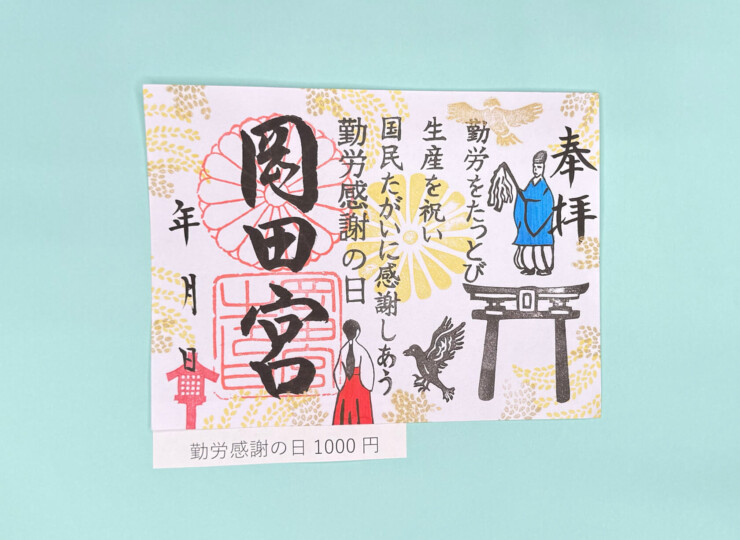 奉拝
勤労をたっとび
生産を祝い
国民たがいに感謝しあう
勤労感謝の日
岡田宮
年月日
勤労感謝の日 1000 円